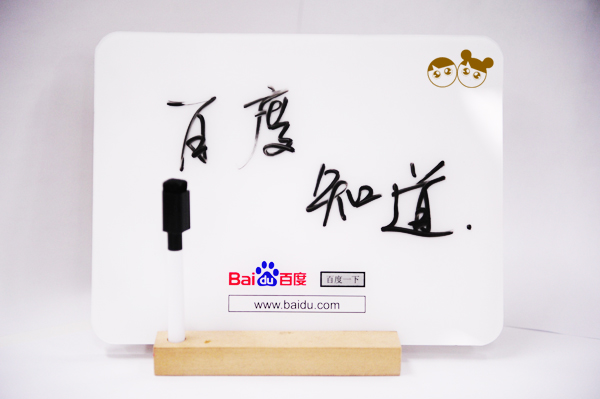 百度
知道.
Baidu百度 百度一下
www.baidu.com